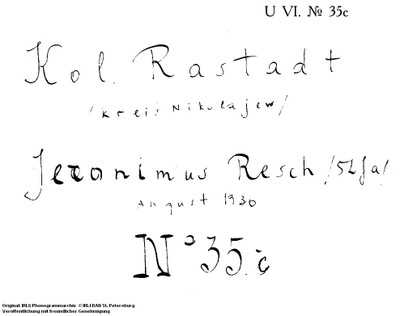 U VI. № 35c
Kol. Rastadt
/Kreis Nikolajew/
Jeronimus Resch /52 Ja/
August 1930
N° 35.c
Original: IRLI, Phonogrammarchiv © IRLI RAN St. Petersburg
Veröffentlichung mit freundlicher Genehmigung